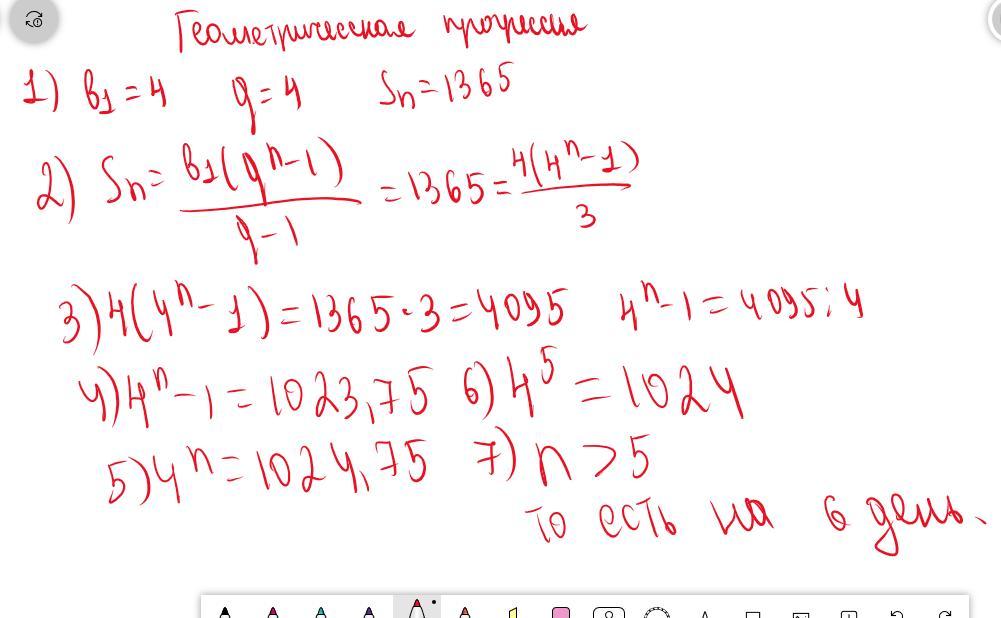 Геометрическая прогрессия
1) b₁ = 4 q = 4 Sn = 1365
2) Sn = b₁(qⁿ - 1) / (q - 1) = 1365 = 4(4ⁿ - 1) / 3
3) 4(4ⁿ - 1) = 1365 · 3 = 4095 4ⁿ - 1 = 4095 : 4
4) 4ⁿ - 1 = 1023,75 6) 4⁵ = 1024
5) 4ⁿ = 1024,75 7) n > 5
то есть на 6 день.